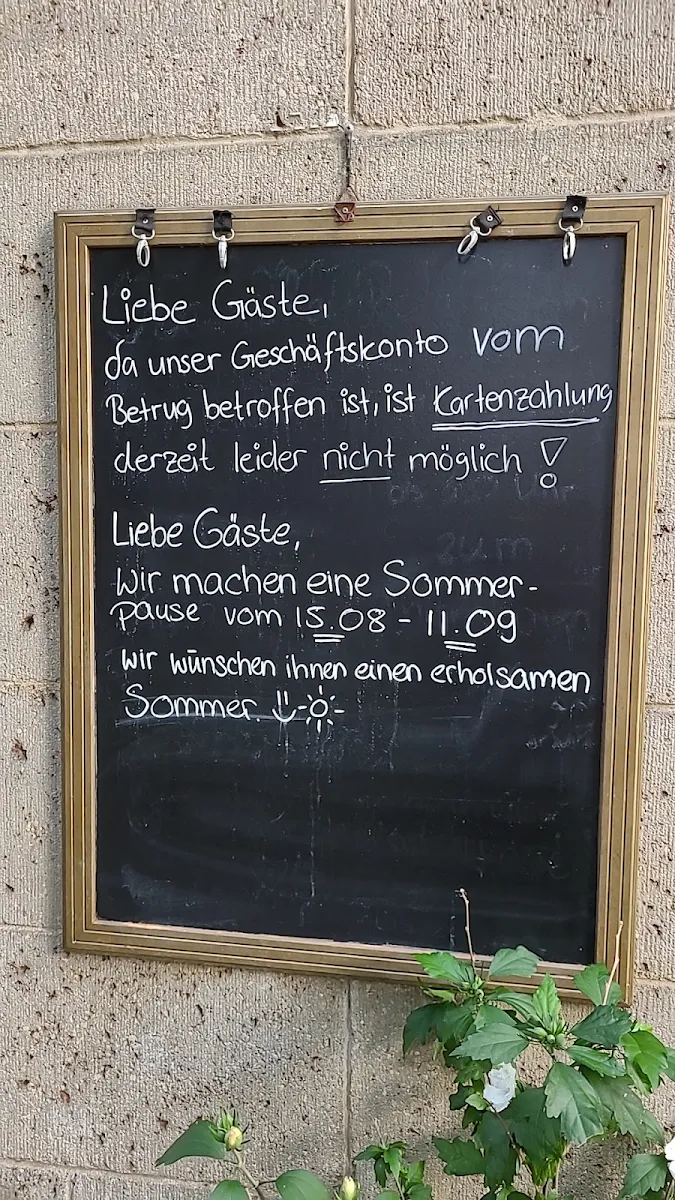 Liebe Gäste,
da unser Geschäftskonto vom
Betrug betroffen ist, ist Kartenzahlung
derzeit leider nicht möglich !
Liebe Gäste,
wir machen eine Sommer-
pause vom 15.08 - 11.09
wir wünschen ihnen einen erholsamen
Sommer
zum